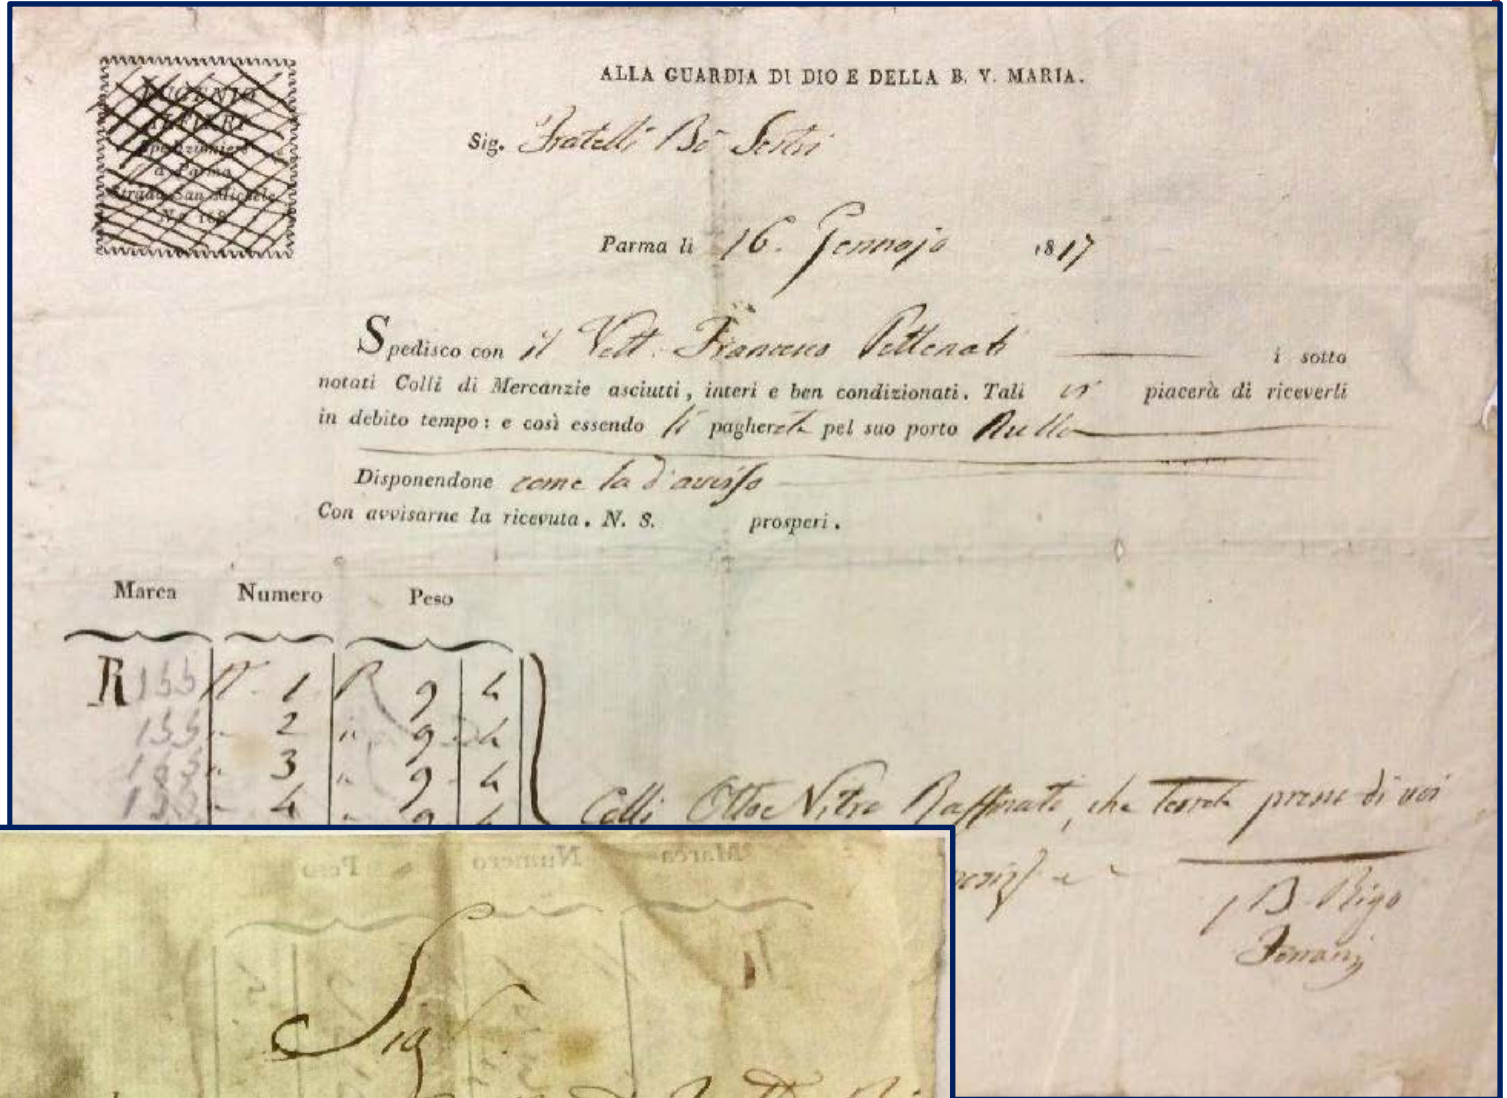 EUGENIO
ALFIERI
Spedizioniere
a Parma
Strada San Michele
ALLA GUARDIA DI DIO E DELLA B. V. MARIA.
Sig. Fratelli Bò Sestri
Parma li 16. Gennajo 1817
Spedisco con il Vett. Francesco Pettenati i sotto
notati Colli di Mercanzie asciutti, interi e ben condizionati. Tali vi piacerà di riceverli
in debito tempo: e così essendo li pagherete pel suo porto Nulla
Disponendone come la d'avviso
Con avvisarne la ricevuta. N. S. prosperi.
Marca Numero Peso
R 155 N. 1 R 9 4
155 " 2 " 9 4
155 " 3 " 9 4
155 " 4 " 9 4
Colli Otto Nitro Raffinato, che terrete presso di voi
Marca Numero Peso
Sig